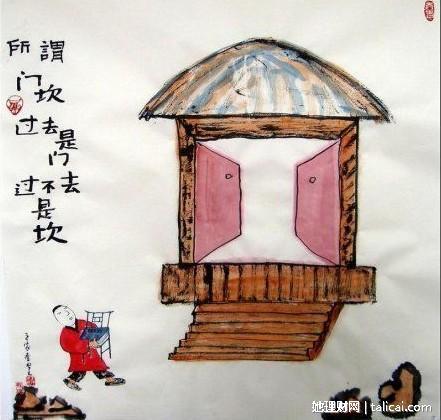 所謂
门坎
过去是门
过不去是坎
她理财网 | talicai.com